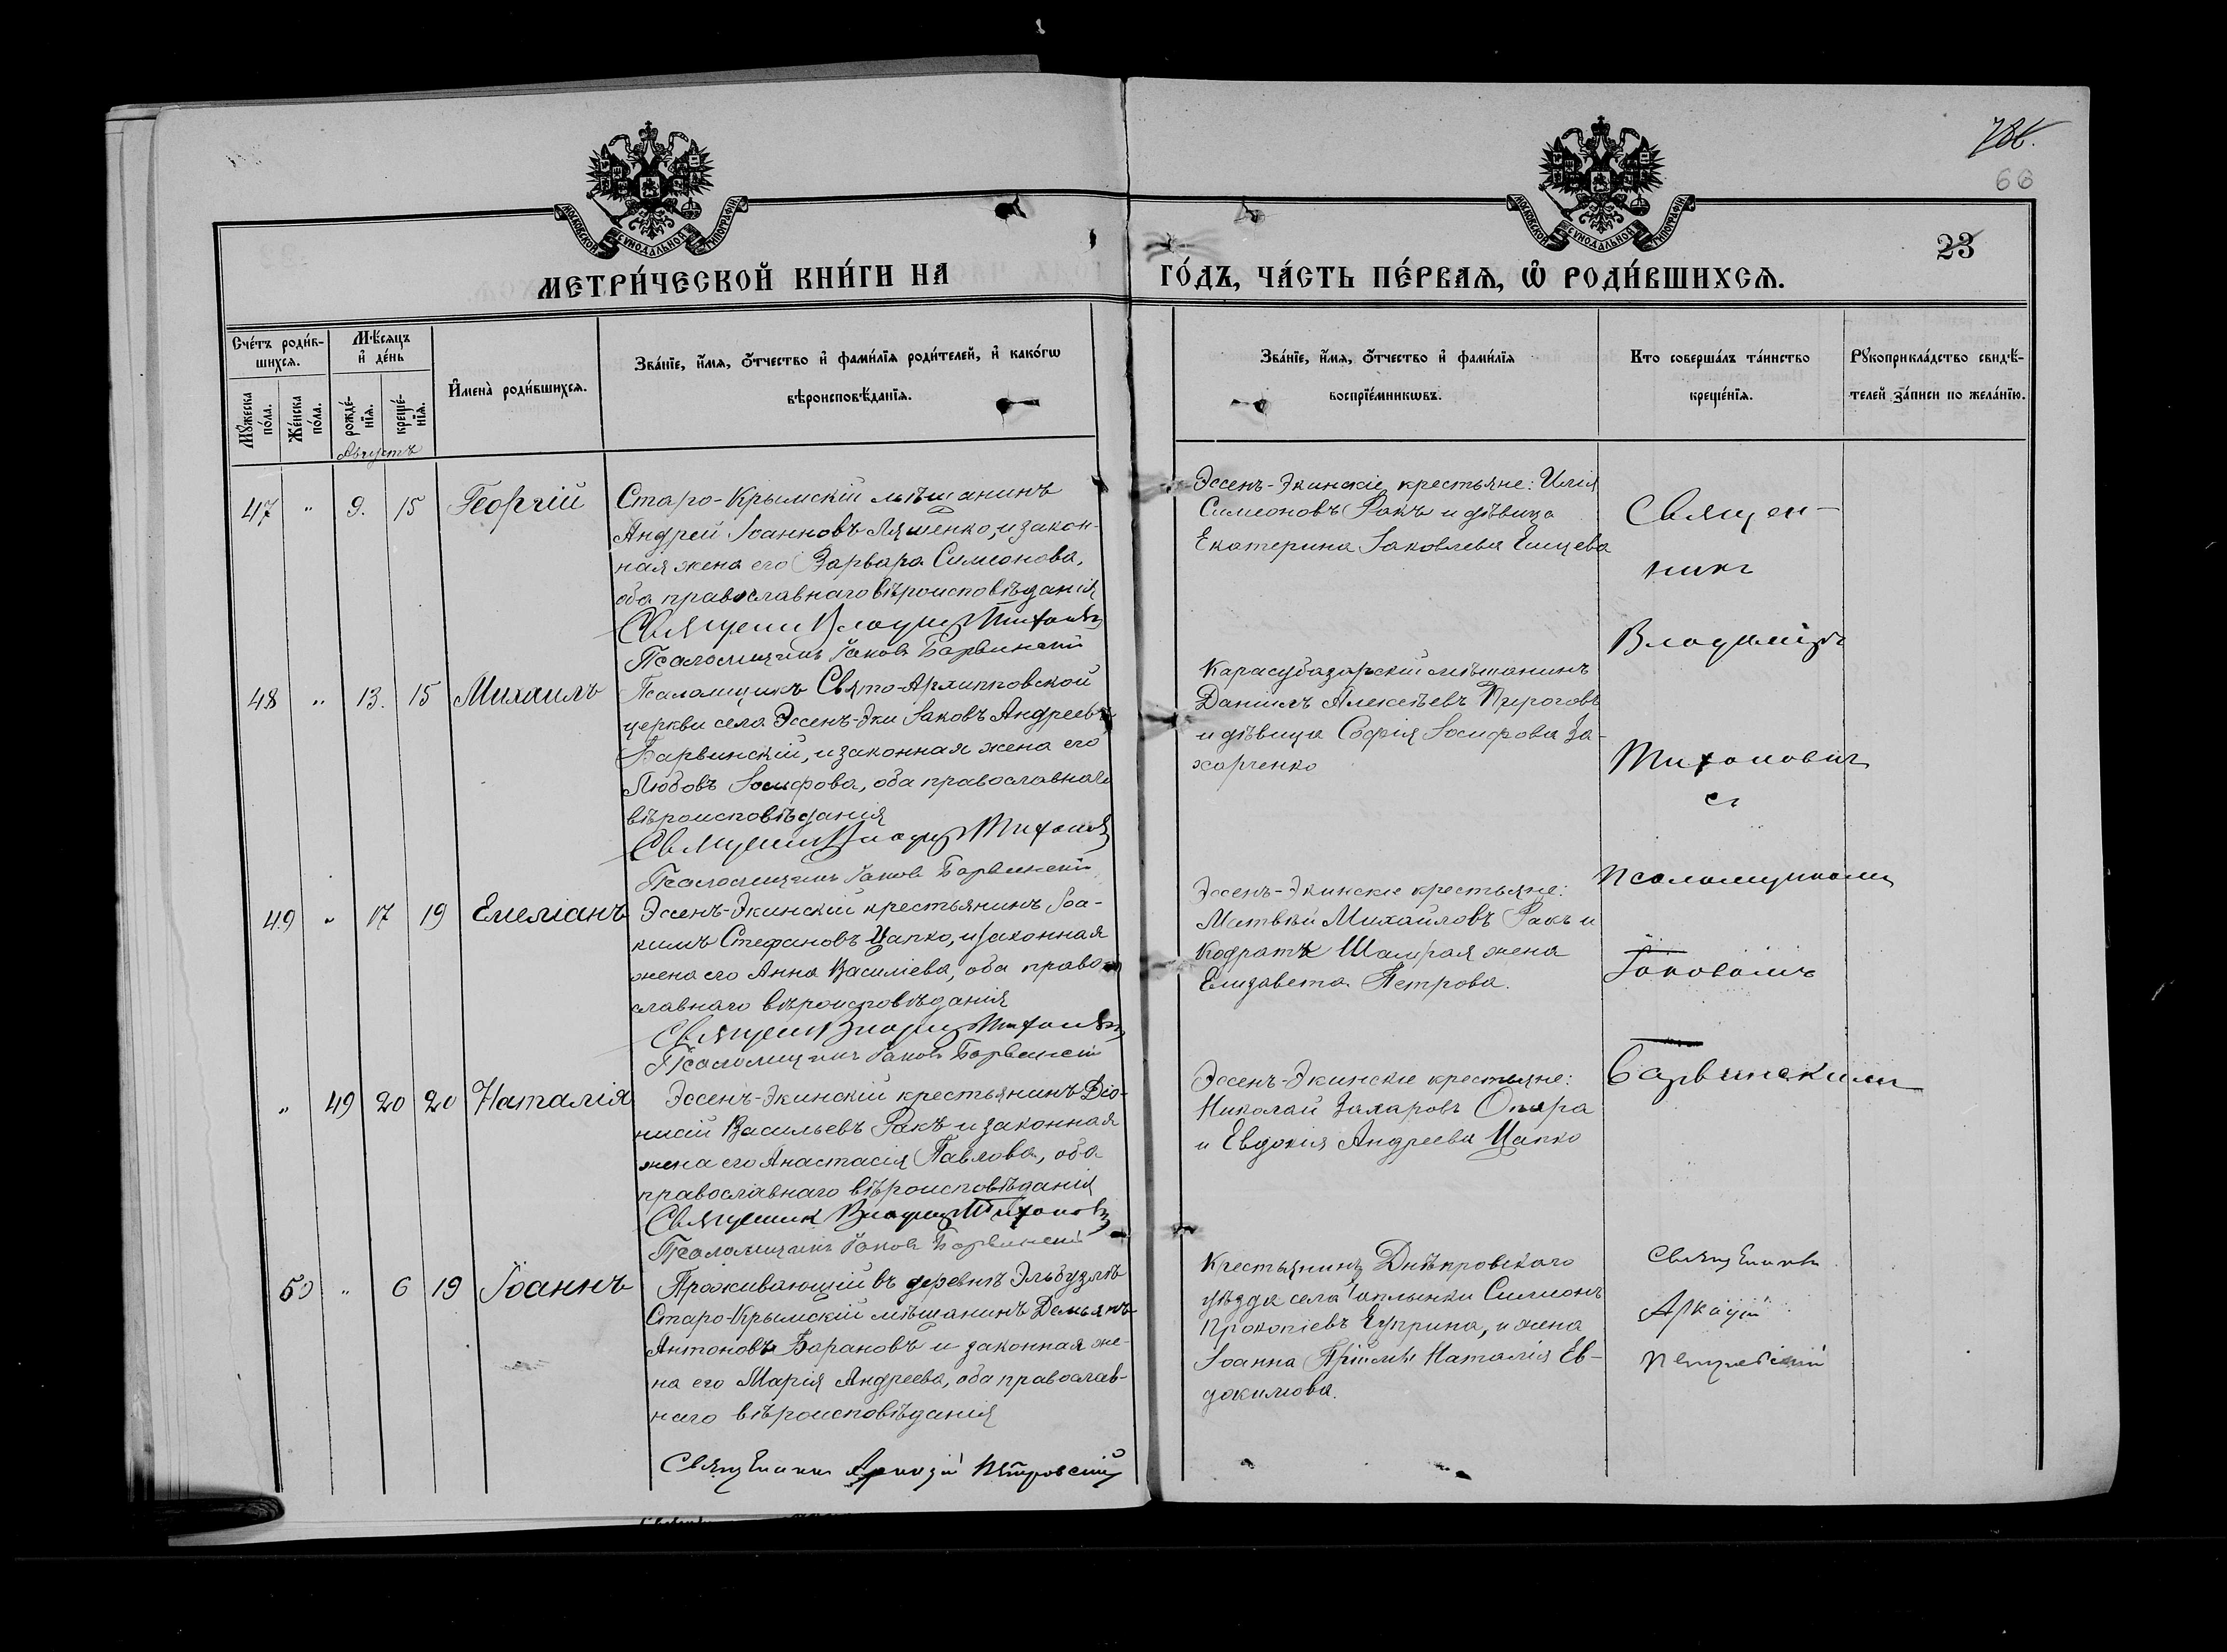 66
23
МОСКОВСКОЙ СѴНОДАЛЬНОЙ ТИПОГРАФІИ
МОСКОВСКОЙ СѴНОДАЛЬНОЙ ТИПОГРАФІИ
МЕТРИ́ЧЕСКОЙ КНИ́ГИ НА
ГО́ДЪ, ЧА́СТЬ ПЕ́РВАѦ, Ѡ҆ РОДИ́ВШИХСѦ.
Сче́тъ роди́в-
шихсѧ.
Мꙋ́жеска по́ла.
Же́нска по́ла.
Мѣ́сѧцъ и҆ де́нь
рожде́-нїѧ.
креще́-нїѧ.
И҆мена̀ роди́вшихсѧ.
Зва́нїе, и҆́мѧ, ѻ҆́тчество и҆ фами́лїѧ роди́телей, и҆ како́гѡ
вѣроисповѣ́данїѧ.
Зва́нїе, и҆́мѧ, ѻ҆́тчество и҆ фами́лїѧ
воспрїе́мникѡвъ.
Кто соверша́лъ та́инство
креще́нїѧ.
Рꙋкоприкла́дство свидѣ́-
телей за́писи по жела́нїю.
Августъ
47 " 9. 15 Георгій
Старо-Крымскій мѣщанинъ
Андрей Іоанновъ Ляшенко, и закон-
ная жена его Варвара Симеонова,
оба православнаго вѣроисповѣданія
Псаломщикъ Іаковъ Барвинскій
Эссенъ-Экинскіе крестьяне: Илія
Симеоновъ Ракъ и дѣвица
Екатерина Іаковлева
48 " 13. 15 Михаилъ
Псаломщикъ Свято-Архипповской
церкви села Эссенъ-Эки Іаковъ Андреевъ
Барвинскій, и законная жена его
Любовь Іосифова, оба православнаго
вѣроисповѣданія
Псаломщикъ Іаковъ Барвинскій
Карасубазарскій мѣщанинъ
Даниилъ Алексѣевъ Пироговъ
и дѣвица Софія Іосифова За-
харченко
49 " 17 19 Емеліанъ
Эссенъ-Экинскій крестьянинъ Іоа-
кимъ Стефановъ Цапко, и законная
жена его Анна Василіева, оба право-
славнаго вѣроисповѣданія
Псаломщикъ Іаковъ Барвинскій
Эссенъ-Экинскіе крестьяне:
Матвѣй Михайловъ Ракъ и
Кодрата Шамрая жена
Елизавета Петрова.
" 49 20 20 Наталія
Эссенъ-Экинскій крестьянинъ Діо-
нисій Васильевъ Ракъ и законная
жена его Анастасія Павлова, оба
православнаго вѣроисповѣданія
Священник Владимір Тихонов
Псаломщикъ Іаковъ Барвинскій
Эссенъ-Экинскіе крестьяне:
Николай Захаровъ Опара
и Евдокія Андреева Цапко
Священ-
никъ
Владиміръ
Тихоновичъ
съ
псаломщикомъ
Іаковомъ
Барвинскимъ
50 " 6 19 Іоаннъ
Проживающій въ деревнѣ Эльбузлы
Старо-Крымскій мѣщанинъ Демьянъ
Антоновъ Барановъ и законная же-
на его Марія Андреева, оба православ-
наго вѣроисповѣданія
Священникъ Аркадій Петровскій
Крестьянинъ Днѣпровскаго
уѣзда села Чаплынки Симеонъ
Прокопіевъ, и жена
Іоанна Наталія Ев-
докимова.
Священникъ
Аркадій
Петровскій